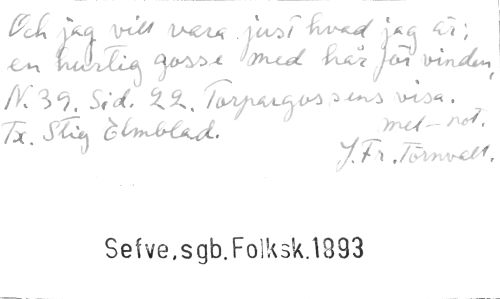 Och jag vill vara just hvad jag är;
en hurtig gosse med hår för vinden,
N. 39. Sid. 22. Torpargossens visa.
Tx. Stig Elmblad. mel-not.
J. Fr. Törnvall.
Sefve.sgb.Folksk.1893